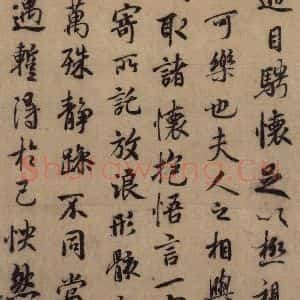 遊目騁懷足以極視
可樂也夫人之相與
取諸懷抱悟言一
寄所託放浪形骸
萬殊靜躁不同當
遇暫得於己怏然
Shufawang.cn